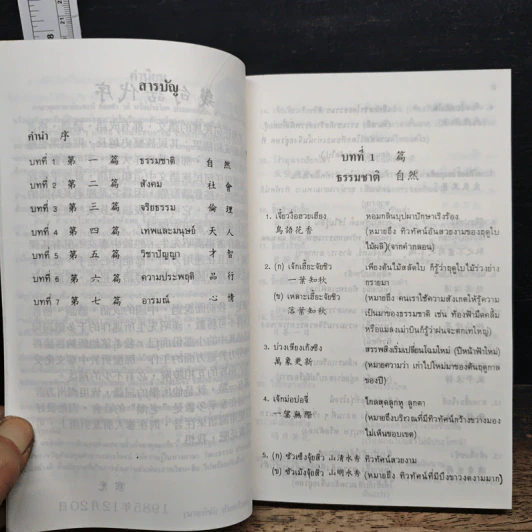 สารบัญ
คำนำ 序
บทที่ 1 第 一 篇 ธรรมชาติ 自 然
บทที่ 2 第 二 篇 สังคม 社 會
บทที่ 3 第 三 篇 จริยธรรม 倫 理
บทที่ 4 第 四 篇 เทพและมนุษย์ 天 人
บทที่ 5 第 五 篇 วิชาปัญญา 才 智
บทที่ 6 第 六 篇 ความประพฤติ 品 行
บทที่ 7 第 七 篇 อารมณ์ 心 情
บทที่ 1 篇
ธรรมชาติ 自然
1. เจี่ยวงื่อฮวยเฮียง หอมกลิ่นบุปผาปักษาเริงร้อง
鳥語花香 (หมายถึง ทิวทัศน์อันสวยงามของฤดูใบ
ไม้ผลิ)(จากคำกลอน)
2. (ก) เจ๊กเฮี้ยะจัยชิว เพียงต้นไม้สลัดใบ ก็รู้ว่าใบไม้ร่วงย่าง
一葉知秋 กรายมา
(ข) เหลาะเฮี้ยะจัยชิว (หมายถึง คนเราใช้ความสังเกตให้รู้ความ
落葉知秋 เป็นมาของธรรมชาติ เช่น ท้องฟ้ามืดคลึ้ม
หรือแมลงเม่าบินก็รู้ว่าฝนจะตกเป็นต้น)
3. บ่วงเซียงเก็งซิง สรรพสิ่งเริ่มเปลี่ยนโฉมใหม่ (ปีหน้าฟ้าใหม่)
萬象更新 (หมายความว่า เก่าไปใหม่มาของต้นฤดูกาล
ของปี)
4. เจ๊กม่อบ่อจี่ ไกลสุดลูกหู ลูกตา
一望無際 (หมายถึงบริเวณที่มีทิวทัศน์กว้างขวางมอง
ไม่เห็นขอบเขต)
5. (ก) ซัวเช็งจุ้ยสิ่ว 山清水秀 ทิวทัศน์สวยงาม
(ข) ซัวเม้งจุ้ยสิ่ว 山明水秀 (หมายถึง ทิวทัศน์ที่มีบึงขาวงดงามมาก)